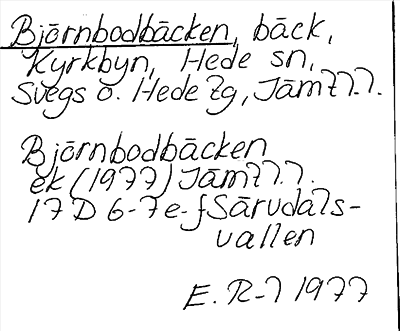 Björnbodbäcken, bäck,
Kyrkbyn, Hede sn,
Svegs o. Hede tg, Jämtl.l.
Björnbodbäcken
ek (1977) Jämtl.l.
17 D 6-7 e-f Särvdals-
vallen
E. R-l 1977